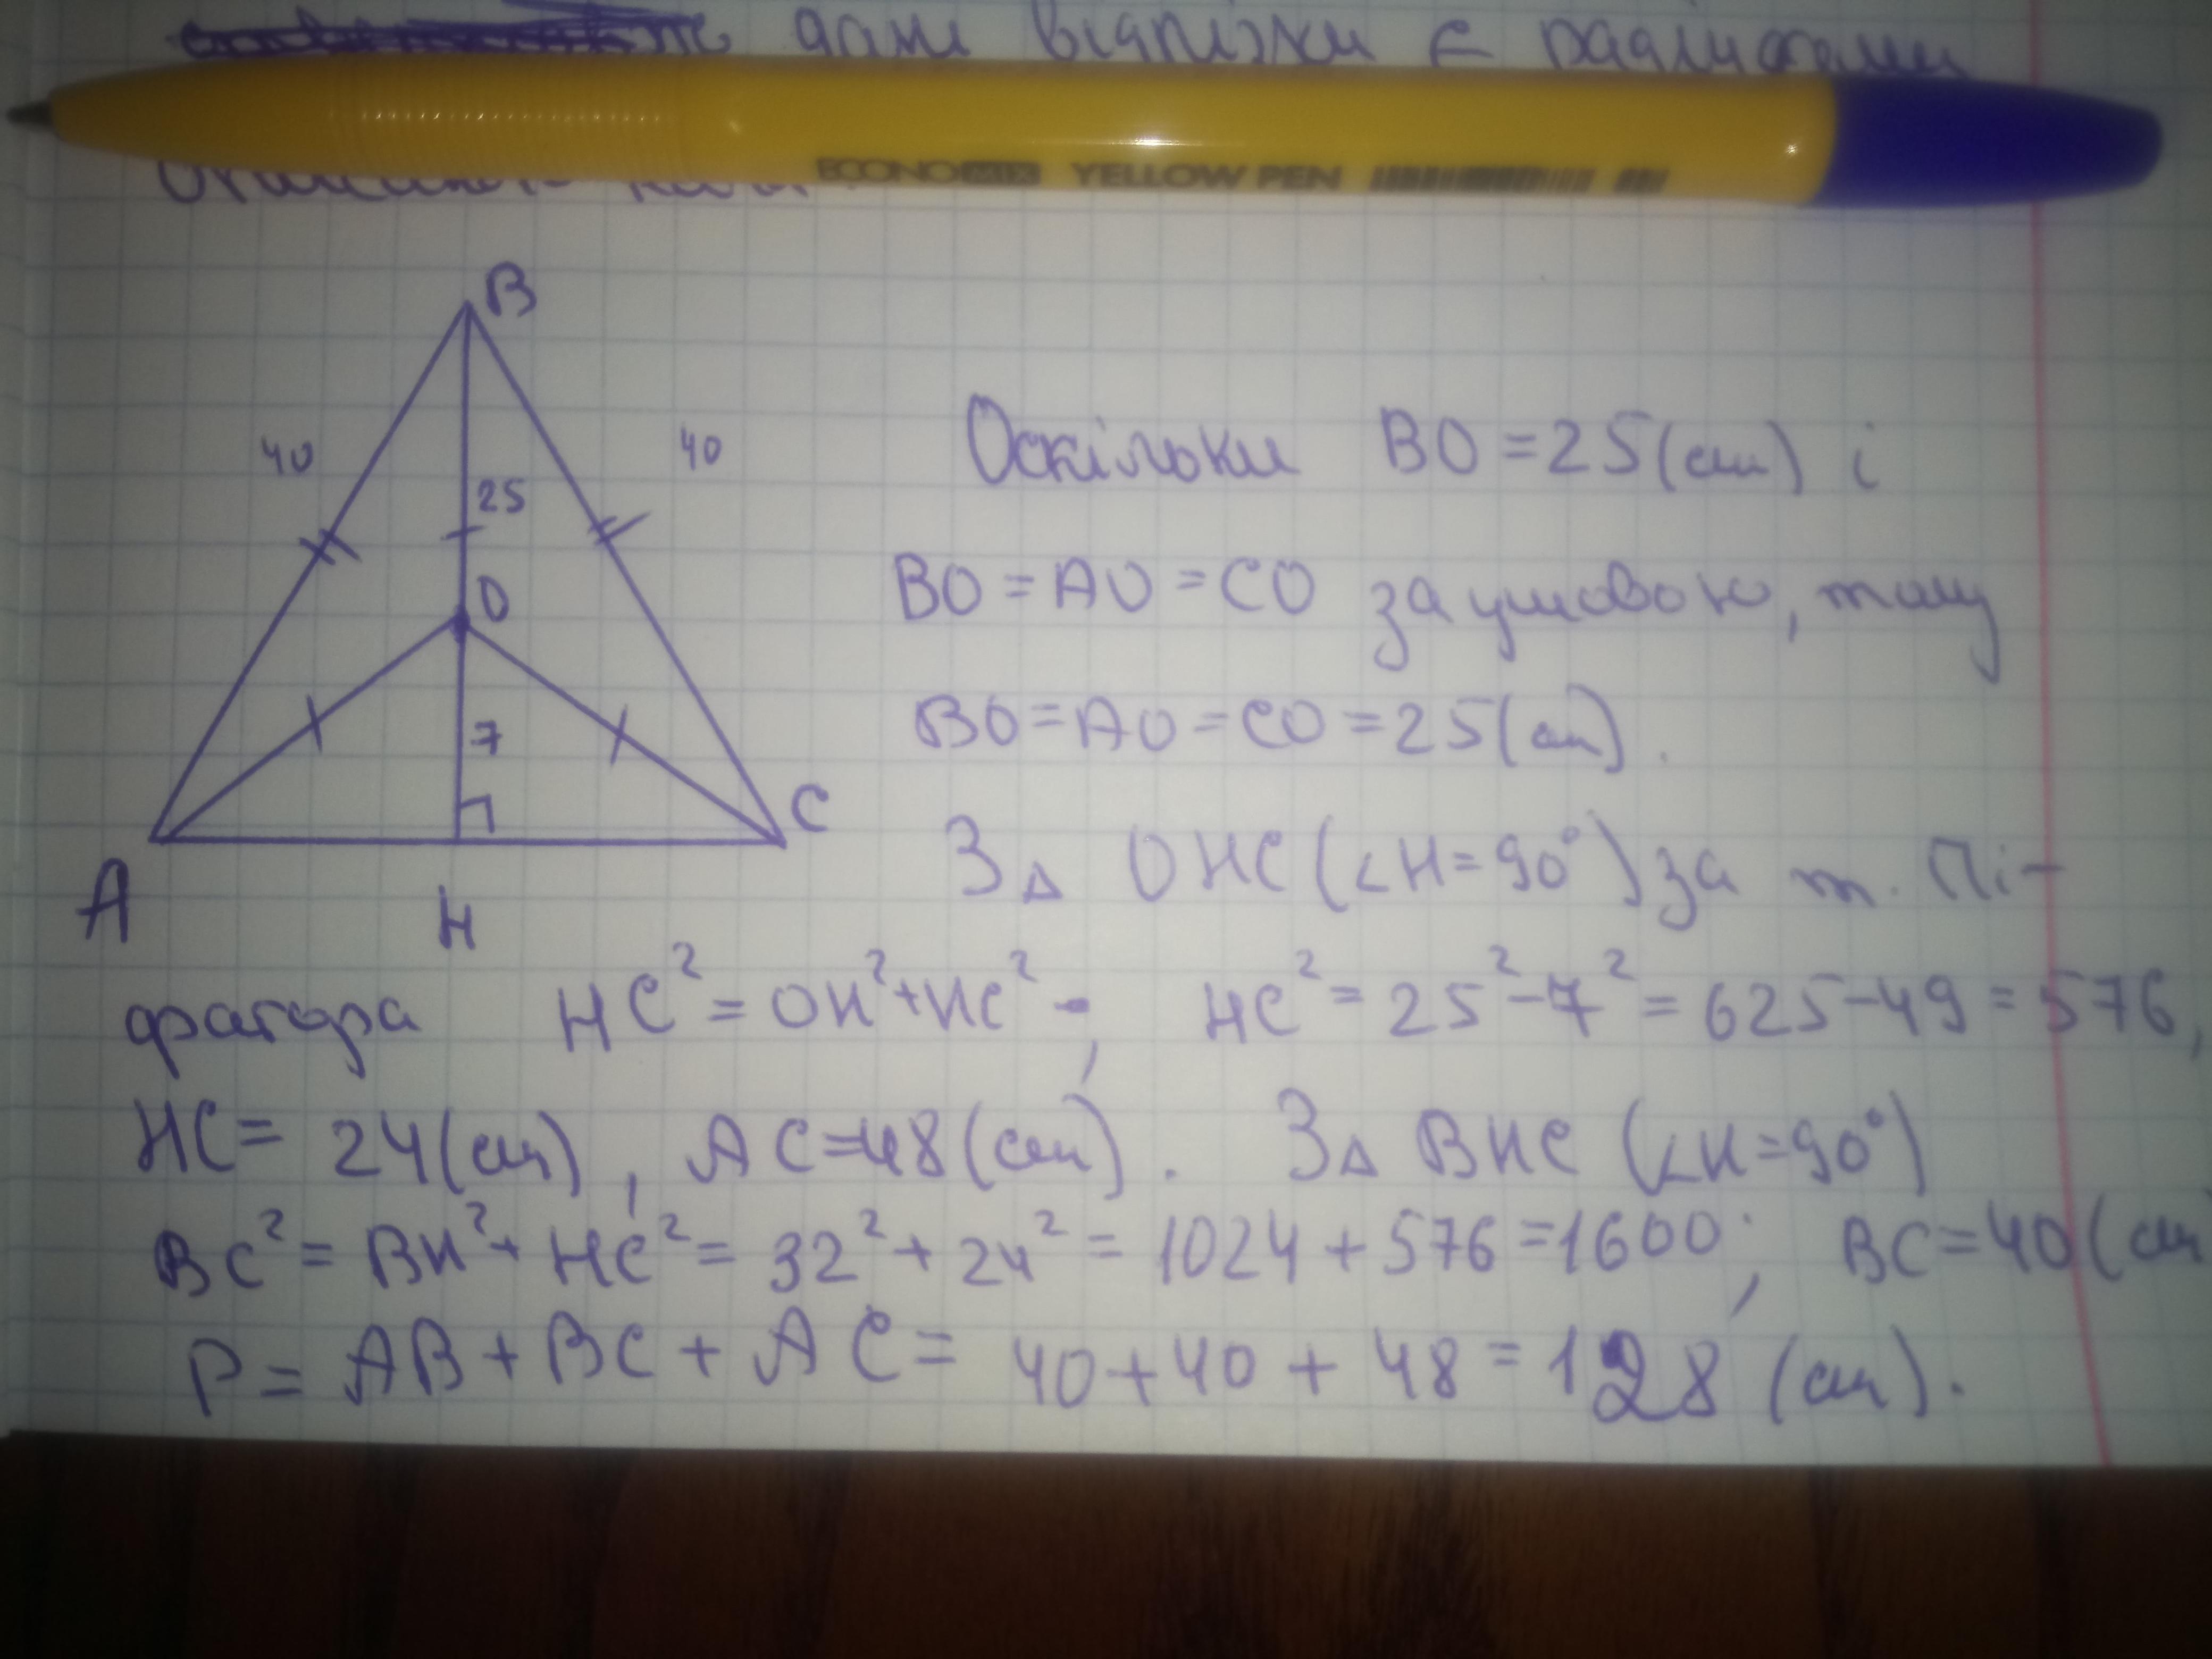 дані відрізки є радіусами
ECONOMIX YELLOW PEN
B
40
40
25
O
7
C
A
H
Оскільки BO = 25 (см) і
BO = AO = CO за умовою, тому
BO = AO = CO = 25 (см).
З △ OHC (∠H = 90°) за т. Пі-
фагора HC² = OH² + HC²; HC² = 25² - 7² = 625 - 49 = 576,
HC = 24 (см), AC = 48 (см). З △ BHC (∠H = 90°)
BC² = BH² + HC² = 32² + 24² = 1024 + 576 = 1600; BC = 40 (см
P = AB + BC + AC = 40 + 40 + 48 = 128 (см).